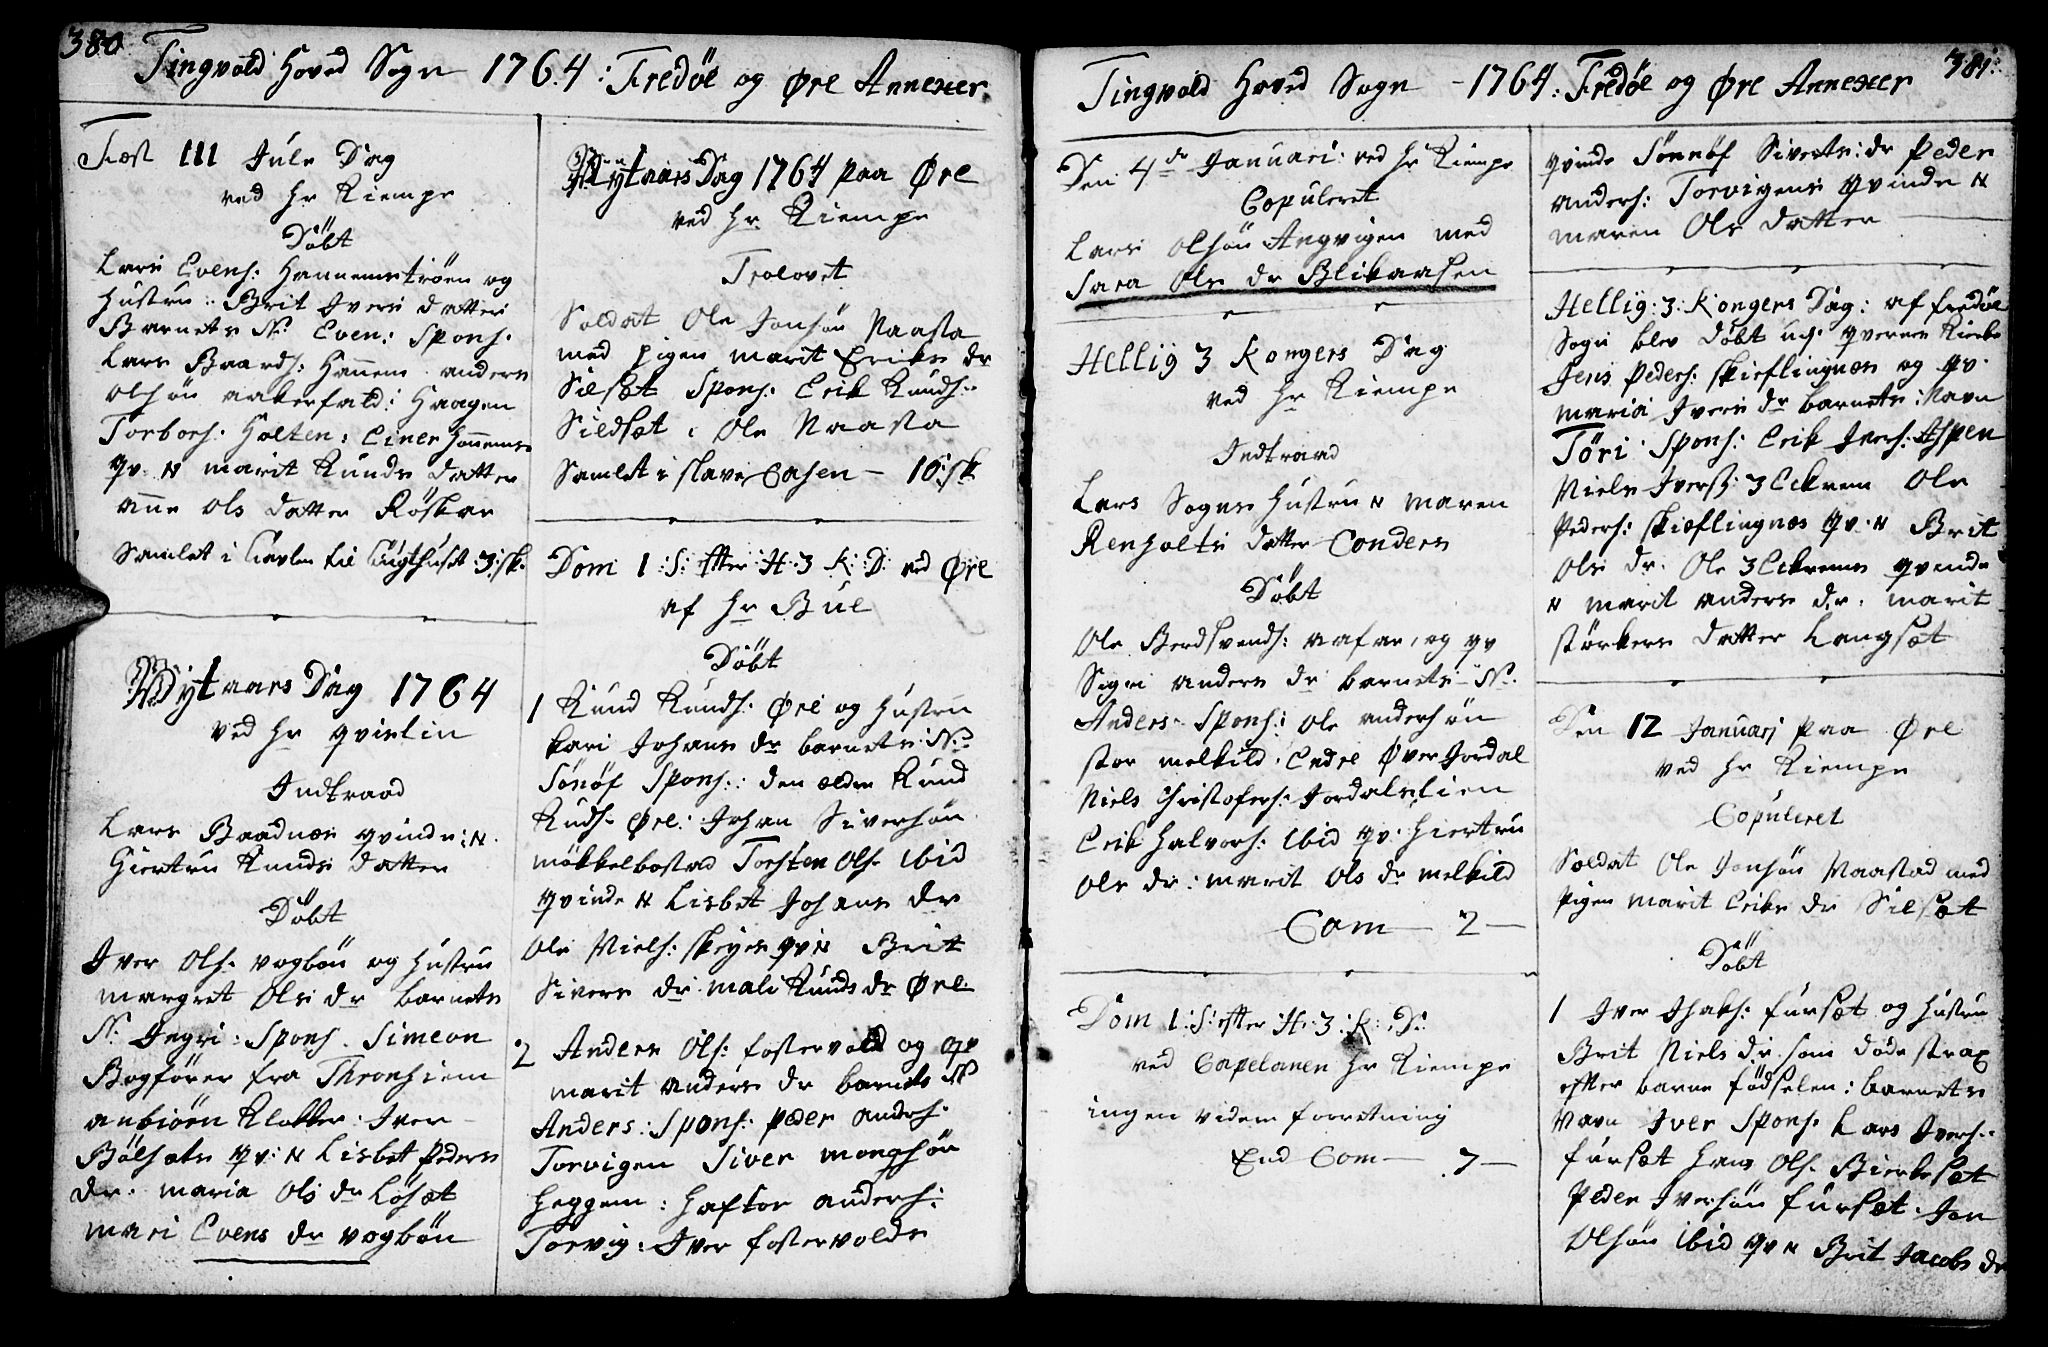 380
Tingvold Hoved Sogn 1764: Fredøe og Øre Annexer
Fæst III Jule Dag
ved Hr Kiempe
Döbt
Lars Evens: Hannemströen og
Hustru: Brit Ivers datter
Barnets N: Even: Spons:
Lars Baards: Hanem anders
Olsön aakerfald: Haagen
Torbers: Holten: Einer Hanems
qv: N marit Knuds datter
anne Ols datter Röskar
Samlet i Tavlen til Tugthuset 3: sk.
Nytaars Dag 1764
ved Hr qvislin
Indtraad
Lars Baadnæs qvinde: N.
Giertru Knuds datter
Döbt
Iver Ols: vogbön og Hustru
margret Ols dr barnets
N: Ingri: Spons. Simeon
Bogförer fra Thronhiem
anbiörn Klokker. Iver
Bölsæts qv: N Lisbet Peders
dr. maria Ols dr Lösæt
mari Evens dr vogbön
Nytaars Dag 1764 paa Øre
ved Hr. Kiempe
Trolovet
Soldat Ole Jonsön Naasta
med pigen marit Eriks dr
Silsæt Spons: Erik Knuds:
Sildsæt, Ole Naasta
Samlet i slave Casen - 16: sk
Dom 1: S: efter H. 3 K: D: ved Øre
af Hr Bul
Döbt
1 Knud Knuds: Øre og Hustru
kari Johans dr barnets N:
Sönöf Spons: den ældre Knud
Knuds. Øre: Johan Siversön
mökkelbostad Torsten Ols. ibid
qvinde N Lisbet Johans dr
Ole Niels: skeyes qv N Brit
Sivers dr mali Knuds dr Øre
2 Anders Ols: fostervold og qv
marit anders dr barnets N
Anders: Spons: Peder anders:
Torvigen Siver mongsön
Heggem: Haftor anders:
Torvig: Iver fostervolds
381:
Tingvold Hoved Sogn - 1764: Fredøe og Øre Annexer
Den 4de Januari: ved Hr Kiempe
Copuleret
Lars Olsön Angvigen med
Sara Ols dr Blikaasen
Hellig 3 Kongers Dag
ved Hr Kiempe
Indtraad
Lars Sogns Hustru N maren
Renholts datter Conders
Döbt
Ole Berdsvends: aafar, og qv
Sigri anders dr barnets N.
Anders. Spons: Ole andersön
stor melkild. Endre Øver Jordal
Niels Christofers: Jordalslien
Erik Halvors: ibid qv. Giertru
Ols dr: marit Ols dr melkild
Com - 2 -
Dom 1: S: efter H: 3: K: D:
ved Capelanen Hr Kiempe
ingen viden forretning
End Com - 7 -
qvinde Sönnöf Siverts: dr Peder
anders: Torvigens qvinde N
maren Ols datter
Hellig: 3: Kongers Dag: af fredöe
Sogn blev döbt udj qvernes Kirke
Jens Peders: skieflingnæs og qv.
maria Ivers dr barnets: Navn
Töri. Spons: Erik Ivers: Aspen
Niels Iverss: 3 Eekrem Ole
Peders: skieflingnæs qv. N Brit
Ols dr. Ole 3 Eekrems qvinde
N marit anders dr. marit
störkers datter Langsæt
Den 12 Januarj paa Øre
ved Hr Kiempe
Copuleret
Soldat Ole Jonsön Naastad med
Pigen marit Eriks dr Silsæt
Döbt
1 Iver Isaks: fursæt og Hustru
Brit Niels dr. som döde strax
efter barne födselen: barnets
Navn Iver Spons. Lars Ivers:
fursæt Hans Ols. Bierkesæt
Peder Iversön fursæt. Jon
Olsön ibid qv N Brit Jacobs dr